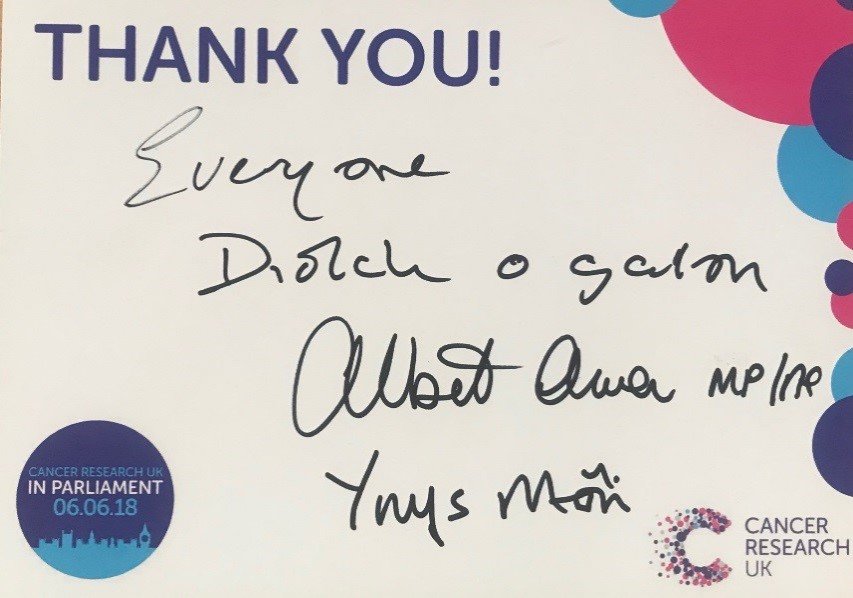 THANK YOU!
Everyone
Diolch o galon
Albert Owen MP/AP
Ynys Môn
CANCER RESEARCH UK
IN PARLIAMENT
06.06.18
CANCER
RESEARCH
UK